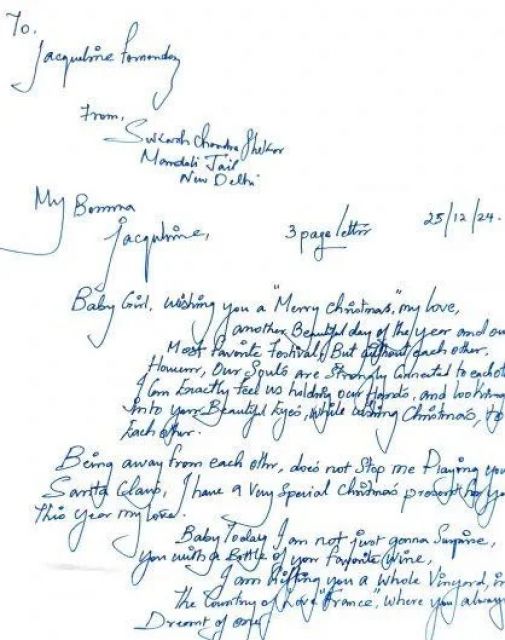 To.
Jacqueline Fernandez
From,
Sukash Chandra Shekar
Mandoli Jail
New Delhi
My Bomma
Jacqueline,
3 page letter
25/12/24.
Baby Girl, wishing you a "Merry christmas," my love,
another Beautiful day of the year and ou
Most favorite Festival, But without each other,
However, Our Souls are Strongly Connected to each ot
I Can Exactly Feel us holding our Hands, and looking
into your Beautiful Eyes, while wishing Christmas, to
Each other.
Being away from each other, does not Stop me Playing you
Santa Claus, I have a very special Christmas present for yo
This year my love.
Baby Today I am not just gonna Surprise,
you with a Bottle of your favorite wine,
I am Gifting you a whole Vinyard, in
The Country of "Love" "France", where you always
Dreamt of one,